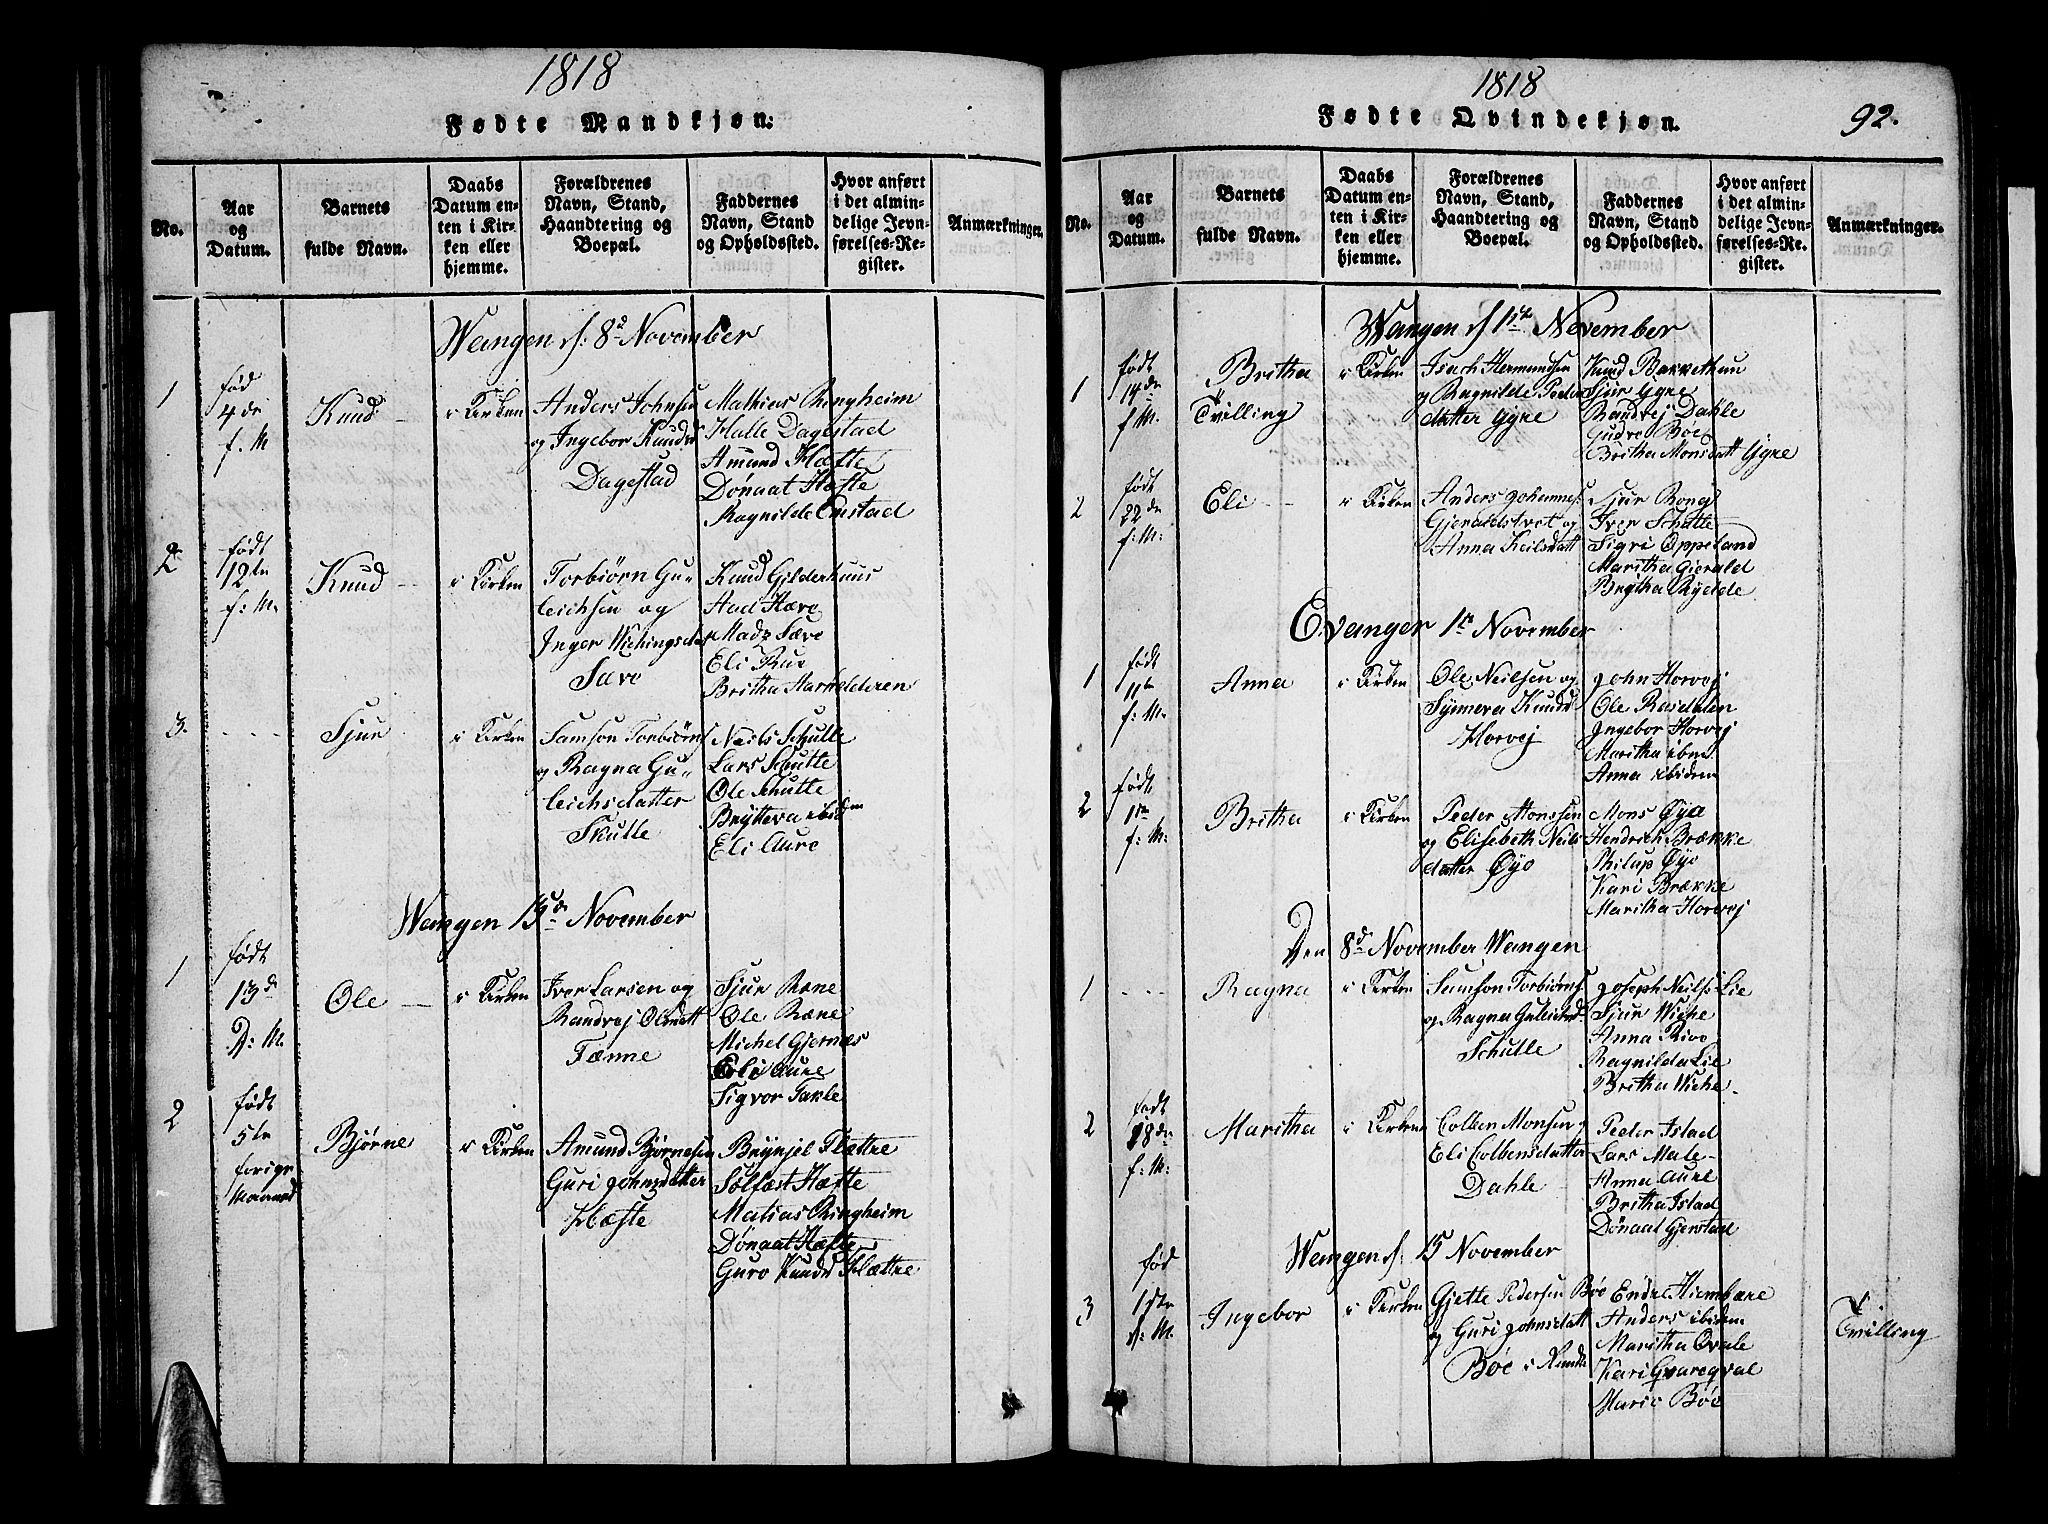 1818
Fødte Mandkjøn:
No.
Aar
og
Datum.
Barnets
fulde Navn.
Daabs
Datum en-
ten i Kir-
ken eller
hjemme.
Forældrenes
Navn, Stand,
Haandtering og
Boepæl.
Faddernes
Navn, Stand
og Opholdssted.
Hvor anført
i det almin-
delige Jevn-
førelses-Re-
gister.
Anmærkninger.
Wangen d: 8d November
1
fød
4de
f. M
Knud
i Kirken
Anders Johnsen
og Ingebor Knudsd
Dagestad
Mathias Ringheim
Halle Dagestad
Amund Hæfte
Dønaat Hæfte
Ragnilde Emstad
2
født
12te
f: M.
Knud
i Kirken
Torbiørn Gu-
leichsen og
Inger Wichingsdtr
Sævo
Knud Gilderhuus
Aad Hævo
Mads Sævo
Eli Rue
Britha Harkelderen
3.
Sjur
i Kirken
Samson Torbiørns
og Ragna Gu-
leichsdatter
Skutle
Neils Schutle
Lars Schutle
Ole Schutle
Brytteva ibidem
Eli Aure
Wangen 15de November
1
født
13d
D: M.
Ole
i Kirken
Iver Larsen og
Randvej Olsdatt
Tænne
Sjur Rone
Ole Ræne
Michel Gjernæs
Eli Aure
Sigvor Takle
2
født
5te
forige
Maaned
Bjørne
i Kirken
Amund Bjørnesen
Guri Johnsdatter
Hæfte
Brynjel Flættre
Sølfæst Hæfte
Matias Ringheim
Dønaat Hæfte
Guro Knudsd Flættre
1818
Fødte Qvindekjøn.
92.
No.
Aar
og
Datum.
Barnets
fulde Navn.
Daabs
Datum en-
ten i Kir-
ken eller
hjemme.
Forældrenes
Navn, Stand,
Haandtering og
Boepæl.
Faddernes
Navn, Stand
og Opholdssted.
Hvor anført
i det almin-
delige Jevn-
førelses-Re-
gister.
Anmærkninger.
Wangen d 1ste November
1
født
14de
f M.
Britha
Tvilling
i Kirken
Isach Hermundsen
og Ragnilde Peders
datter Gjre
Knud Bakkethun
Sjur Gjre
Randvej Dahle
Gudve Boe
Britha Monsdatt Gjre
2
født
22de
f: M:
Eli
i Kirken
Anders Johannes
Gjeraldstvet og
Anna Keilsdatt
Sjur Rong
Iver Schutle
Sigri Oppeland
Maritha Gierald
Brytha Rydde
Evanger 1te November
1
født
11te
f: M.
Anna
i Kirken
Ole Neilsen og
Synneva Knudsd
Horvej
John Horvej
Ole Rasdalen
Ingebor Horvej
Maritha ibem
Anna ibidem
2
født
1te
f: M:
Britha
i Kirken
Peder Monssen
og Elisebeth Neils
datter Øyo
Mons Øya
Hendrich Brække
Philup Øyo
Kari Brække
Maritha Horvej
Den 8d November Wangen
1
Ragna
i Kirken
Samson Torbiørns
og Ragna Guleichsd.
Schutle
Joseph Neilss Lie
Sjur Wiche
Anna Rivo
Ragnilda Lie
Britha Wiche
2
født
18de
f: M:
Maritha
i Kirken
Colben Monsen og
Eli Colbensdatter
Dahle
Peder Istad
Lars Male
Anna Aure
Britha Istad
Dønaat Gjerstad
Wangen d: 15 November
3
fød
1ste
d: M.
Ingebor
i Kirken
Gjette Pedersen Bøe
og Guri Johnsdatt
Bøe i Runda
Endre Hiembære
Anders ibidem
Maritha Ovale
Kari Gvareqval
Mario Bøe
Tvilling